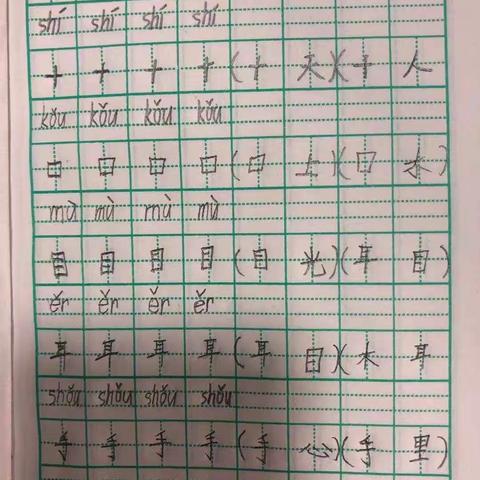 shí shí shí shí
十 十 十 十 (十 天)(十 人
kǒu kǒu kǒu kǒu
口 口 口 口 (口 上)(口 水)
mù mù mù mù
目 目 目 目 (目 光)(耳 目)
ěr ěr ěr ěr
耳 耳 耳 耳 (耳 目)(木 耳
shǒu shǒu shǒu shǒu
手 手 手 手 (手 心)(手 里)